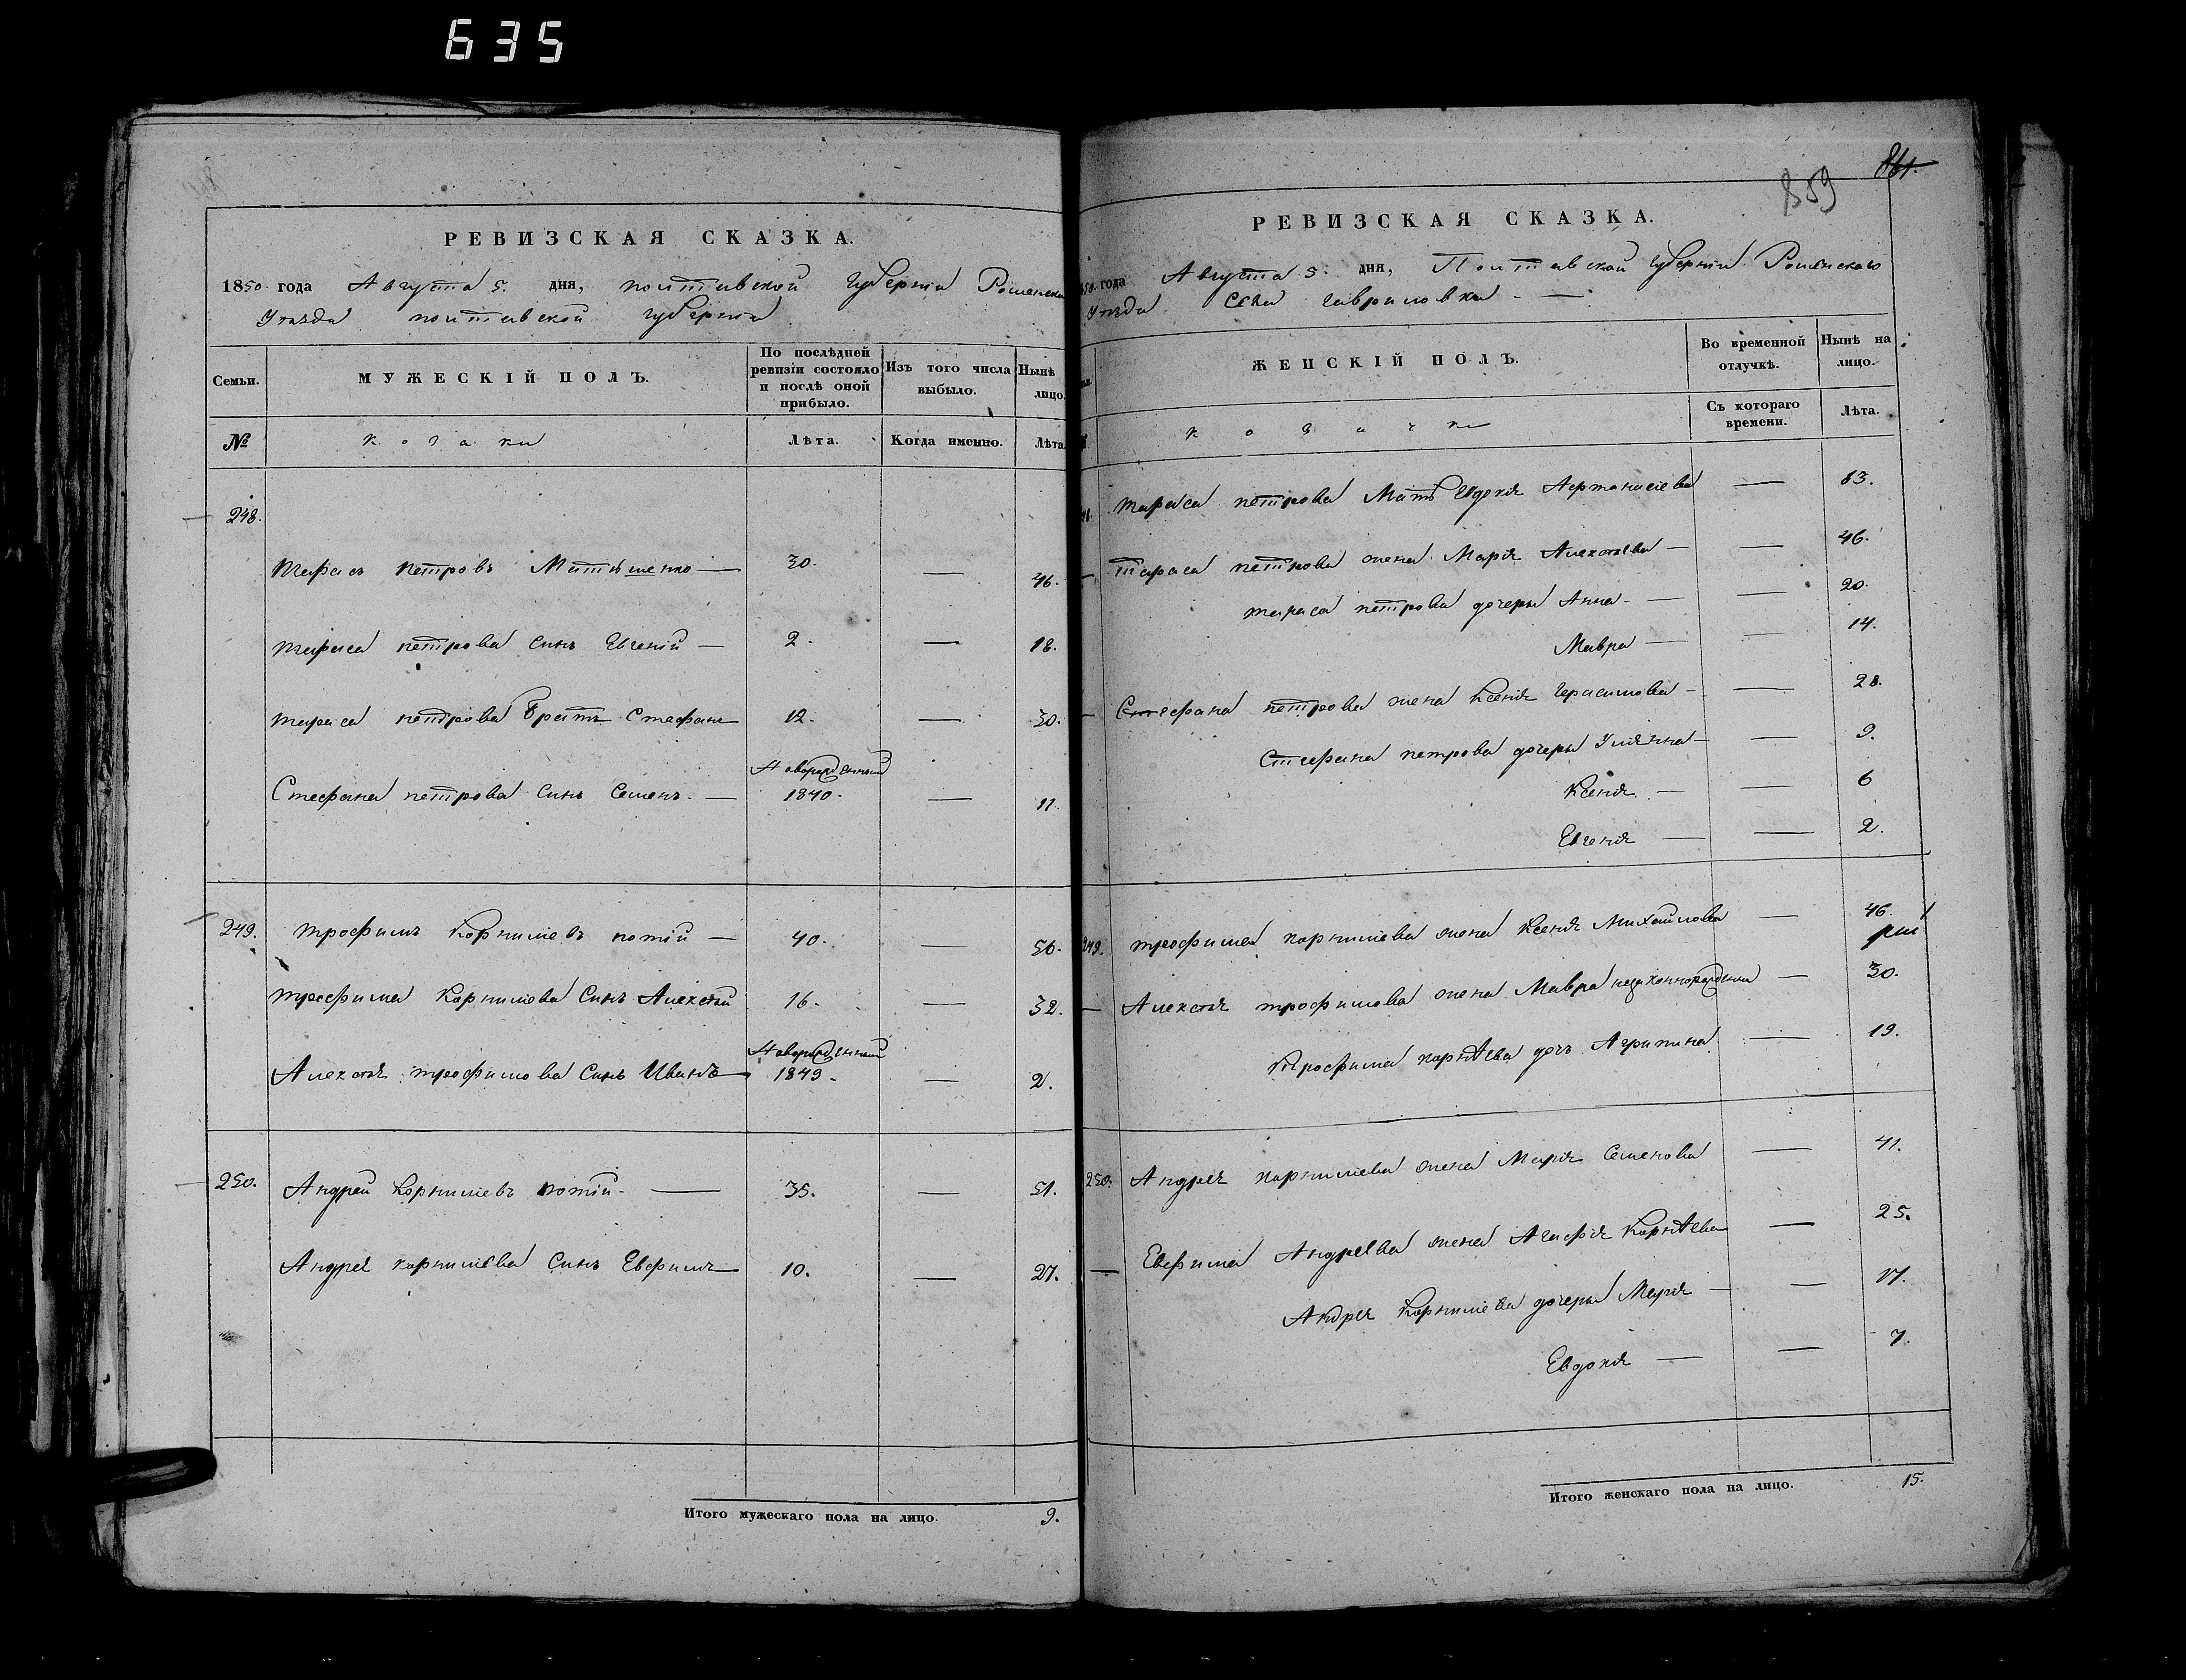 635
РЕВИЗСКАЯ СКАЗКА.
1850 года Августа 5. дня, полтавской губерніи Роменска
Уѣзда полтавской губерніи
Семьи.
МУЖЕСКІЙ ПОЛЪ.
По послѣдней ревизіи состояло и послѣ оной прибыло.
Изъ того числа выбыло.
Нынѣ лицо.
№
козаки
Лѣта.
Когда именно.
Лѣта
248.
Тарасъ Петровъ 30. — 46.
Тараса петрова сынъ Евгеній — 2. — 18.
Тараса петрова братъ Стефанъ 12. — 30.
Стефана петрова сынъ Семенъ. — Новорожденный 1840. — 11.
249. Трофимъ Корниліевъ потій — 40. — 56.
Трофима Корнилова сынъ Алексѣй 16. — 32.
Алексѣя трофимова сынъ Иванъ Новорожденный 1849. — 2.
250. Андрей Корниліевъ потій. — 35. — 51.
Андрея корниліева сынъ Евфимъ 10. — 27.
Итого мужескаго пола на лицо. 9.
861.
859
РЕВИЗСКАЯ СКАЗКА.
850. года Августа 5. дня, Полтавской губерніи Роменскаго
Уѣзда Села гавриловки. —
ЖЕНСКІЙ ПОЛЪ.
Во временной отлучкѣ.
Нынѣ на лицо.
козачки
Съ котораго времени.
Лѣта.
Тараса петрова Мать Евдокія — 63.
— Тараса петрова жена Марія Алексѣева — — 46.
Тараса петрова дочери Анна. — — 20.
Мавра — — 14.
— Стефана петрова жена Ксенія герасимова — — 28.
Стефана петрова дочери Уліянна — — 9.
Ксенія. — — 6
Евгенія — — 2.
249. Трофима корниліева жена Ксенія Михайлова — 46.
— Алексѣя трофимова жена Мавра незаконнорожденна — 30.
Трофима корнѣева дочь Агрипина — 19.
250. Андрея корниліева жена Марія Семенова — 41.
— Евфима Андреева жена Агафія Корнѣева — 25.
Андрея Корниліева дочери Марія — — 17.
Евдокія — — 7.
Итого женскаго пола на лицо. 15.